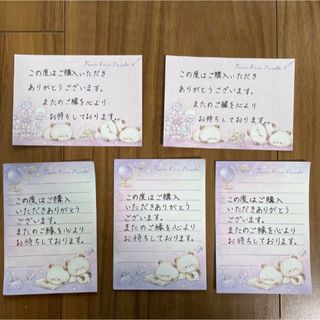 この度はご購入いただき
ありがとうございます。
またのご縁を心より
お待ちしております。
この度はご購入いただき
ありがとうございます。
またのご縁を心より
お待ちしております。
この度はご購入
いただきありがとう
ございます。
またのご縁を心より
お待ちしております。
この度はご購入
いただきありがとう
ございます。
またのご縁を心より
お待ちしております。
この度はご購入
いただきありがとう
ございます。
またのご縁を心より
お待ちしております。